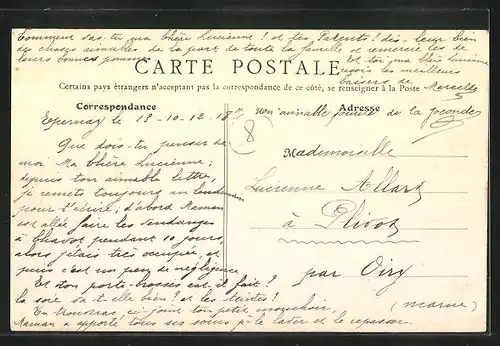 Comment vas-tu ma chère Lucienne ! et tes Parents ? dis-leur bien
des choses aimables de la part de toute la famille et remercie les de
leurs bonnes pensées. Et toi ma chère Lucienne
reçois les meilleurs
baisers de
Marcelle
CARTE POSTALE
Certains pays étrangers n'acceptant pas la correspondance de ce côté, se renseigner à la Poste
Correspondance
Adresse
Epernay le 18-10-12
(8)
aimable de la Joconde
Que dois-tu penser de
moi Ma chère Lucienne ;
depuis ton aimable lettre,
je remets toujours au lendemain
pour t'écrire ; d'abord Maman
est allée faire les vendanges
à Chavot pendant 10 jours,
alors j'étais très occupée, et
puis c'est un peu de négligence
Et ton porte-brosses est-il fait ?
la soie va-t-elle bien ? et les teintes !
Tu trouveras, ci-joint ton petit mouchoir,
Maman a apporté tous ses soins p' le laver et le repasser.
Mademoiselle
Lucienne Allart
à Plivot
par Oiry
(Marne)